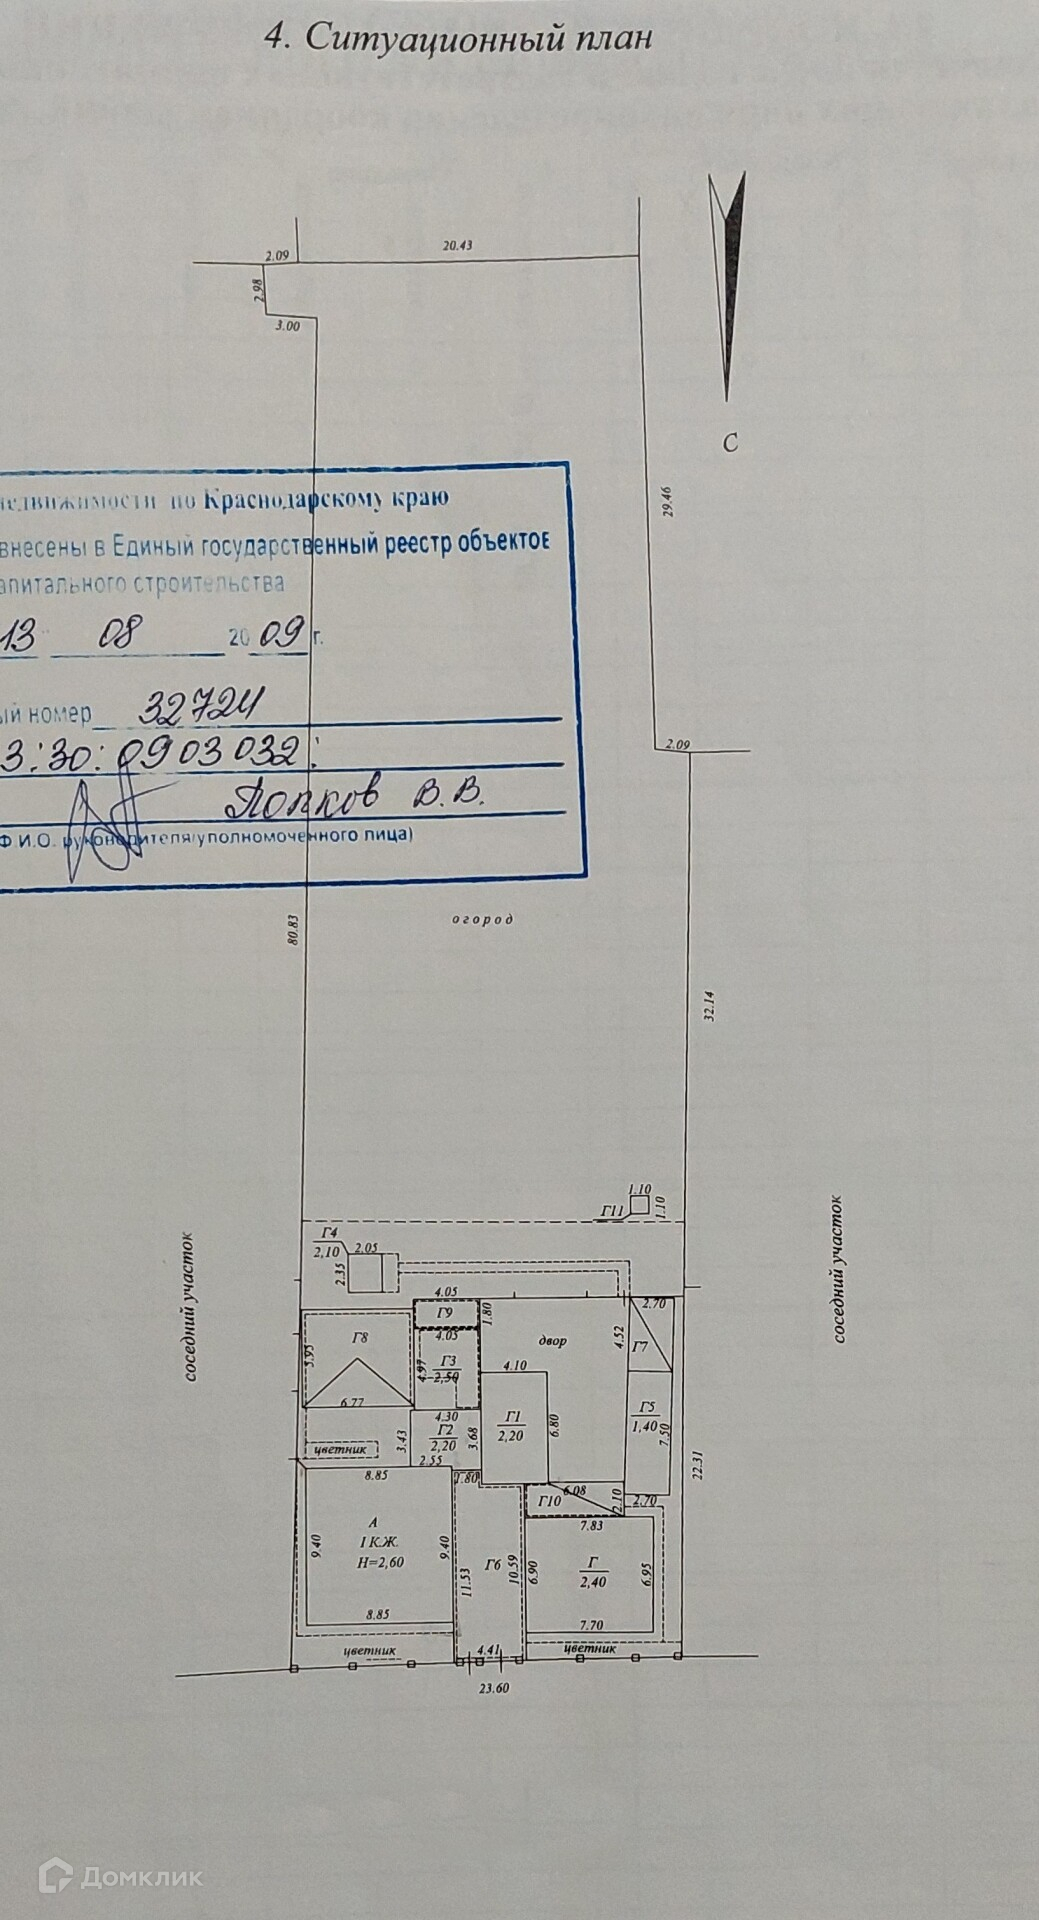 4. Ситуационный план
20.43
2.09
2.98
3.00
С
29.46
недвижимости по Краснодарскому краю
внесены в Единый государственный реестр объектов
капитального строительства
13 08 2009 г.
ый номер 32724
3:30:0903032:
Попков В.В.
Ф.И.О. руководителя/уполномоченного лица)
2.09
80.83
огород
32.14
1.10
1.10
Г11
Г4
2,10
2.05
2.35
соседний участок
соседний участок
4.05
Г9
1.80
2.70
Г8
5.95
4.05
Г3
2,50
4.97
двор
4.52
Г7
4.10
6.77
4.30
Г2
2,20
3.43
3.68
2.55
Г1
2,20
6.80
Г5
1,40
7.50
22.31
цветник
8.85
1.80
6.08
Г10
2.10
2.70
7.83
А
I К.Ж.
Н=2,60
9.40
9.40
Г6
11.53
10.59
6.90
Г
2,40
6.95
8.85
7.70
цветник
4.41
цветник
23.60
Домклик